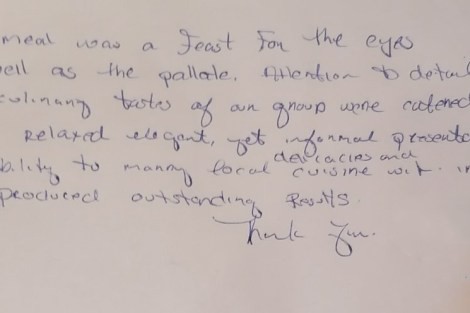 meal was a Feast For the eyes
ell as the pallate. Attention to detail
culinary tastes of our group were catered
Relaxed elegant, yet informal presentat
delicacies and
bility to marry local cuisine wit
produced outstanding Results.
Thank You.